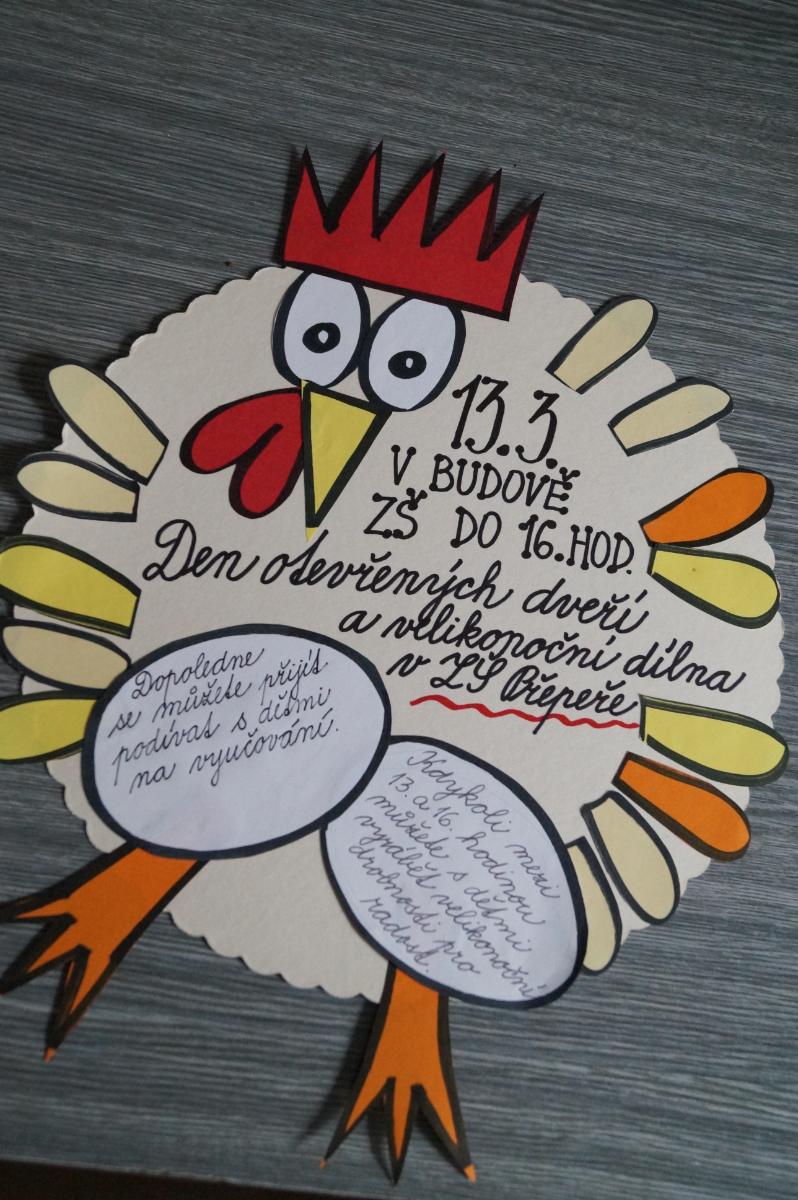 13.3.
V BUDOVĚ
ZŠ DO 16.HOD.
Den otevřených dveří
a velikonoční dílna
v ZŠ Přepeře
Dopoledne
se můžete přijít
podívat s dětmi
na vyučování.
Kdykoli mezi
13. a 16. hodinou
můžete s dětmi
vyrábět velikonoční
drobnosti pro
radost.